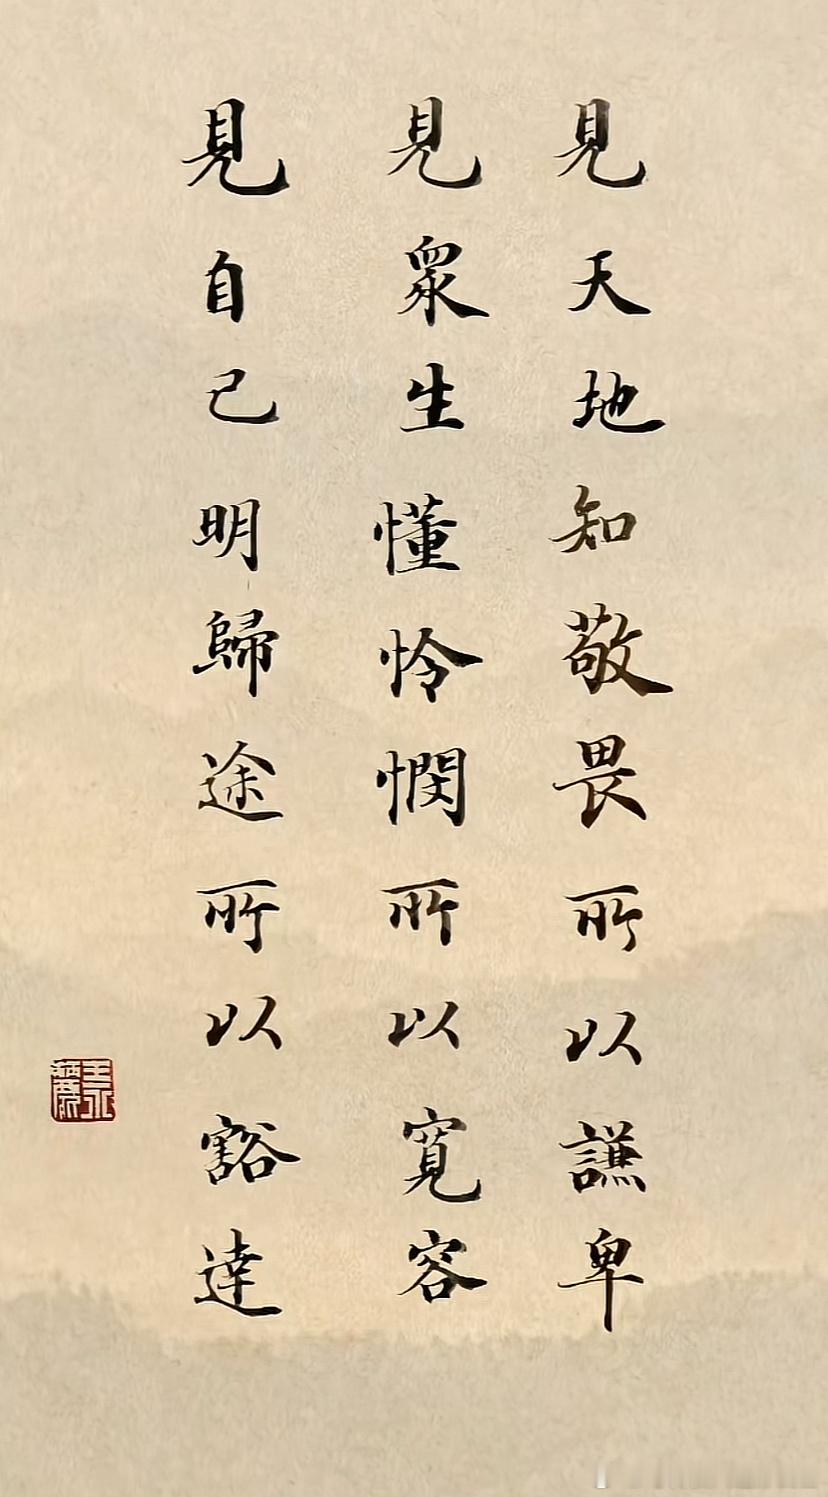 見天地知敬畏所以謙卑
見眾生懂怜憫所以寬容
見自己明歸途所以豁達